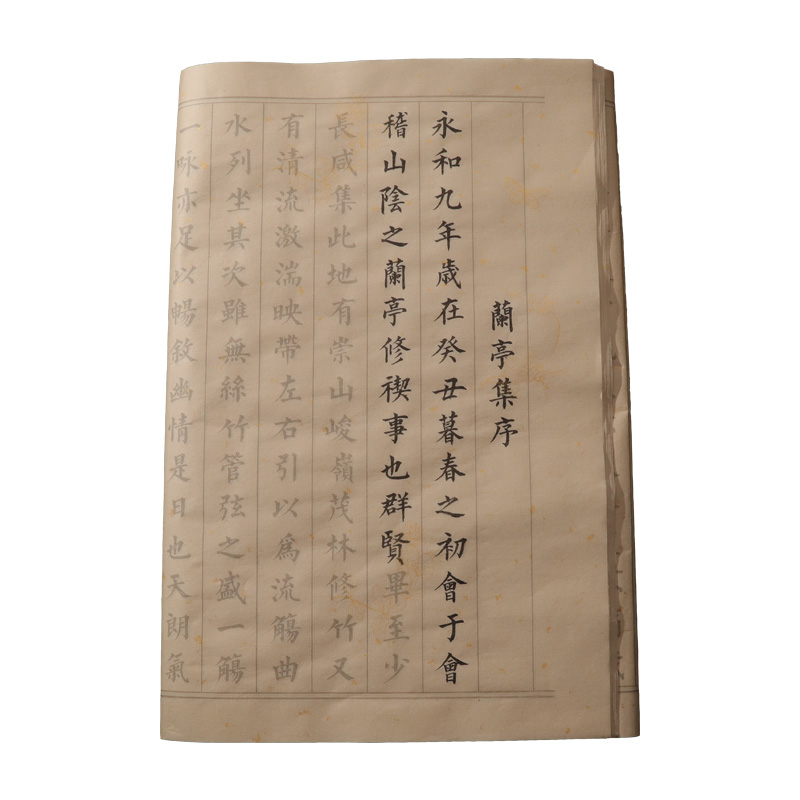 蘭亭集序
永和九年歲在癸丑暮春之初會于會
稽山陰之蘭亭修禊事也群賢畢至少
長咸集此地有崇山峻嶺茂林修竹又
有清流激湍映帶左右引以為流觴曲
水列坐其次雖無絲竹管弦之盛一觴
一咏亦足以暢敘幽情是日也天朗氣